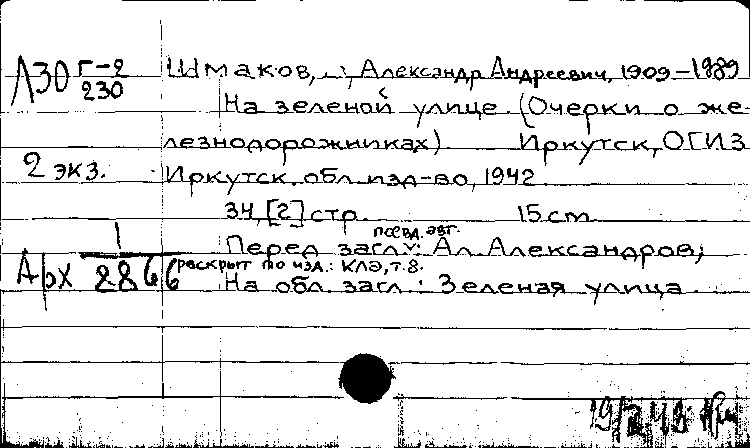 Л30 Г-2/230
Шмаков, Александр Андреевич, 1909-1989
На зеленой улице. (Очерки о же-
лезнодорожниках) Иркутск, ОГИЗ
2 экз. Иркутск. обл. изд-во, 1942
34, [2] стр. 15 cm
псевд. авт.
Перед загл.: Ал. Александров;
Арх 1/2866 раскрыт по изд.: КЛЭ, т. 8.
На обл. загл.: Зеленая улица